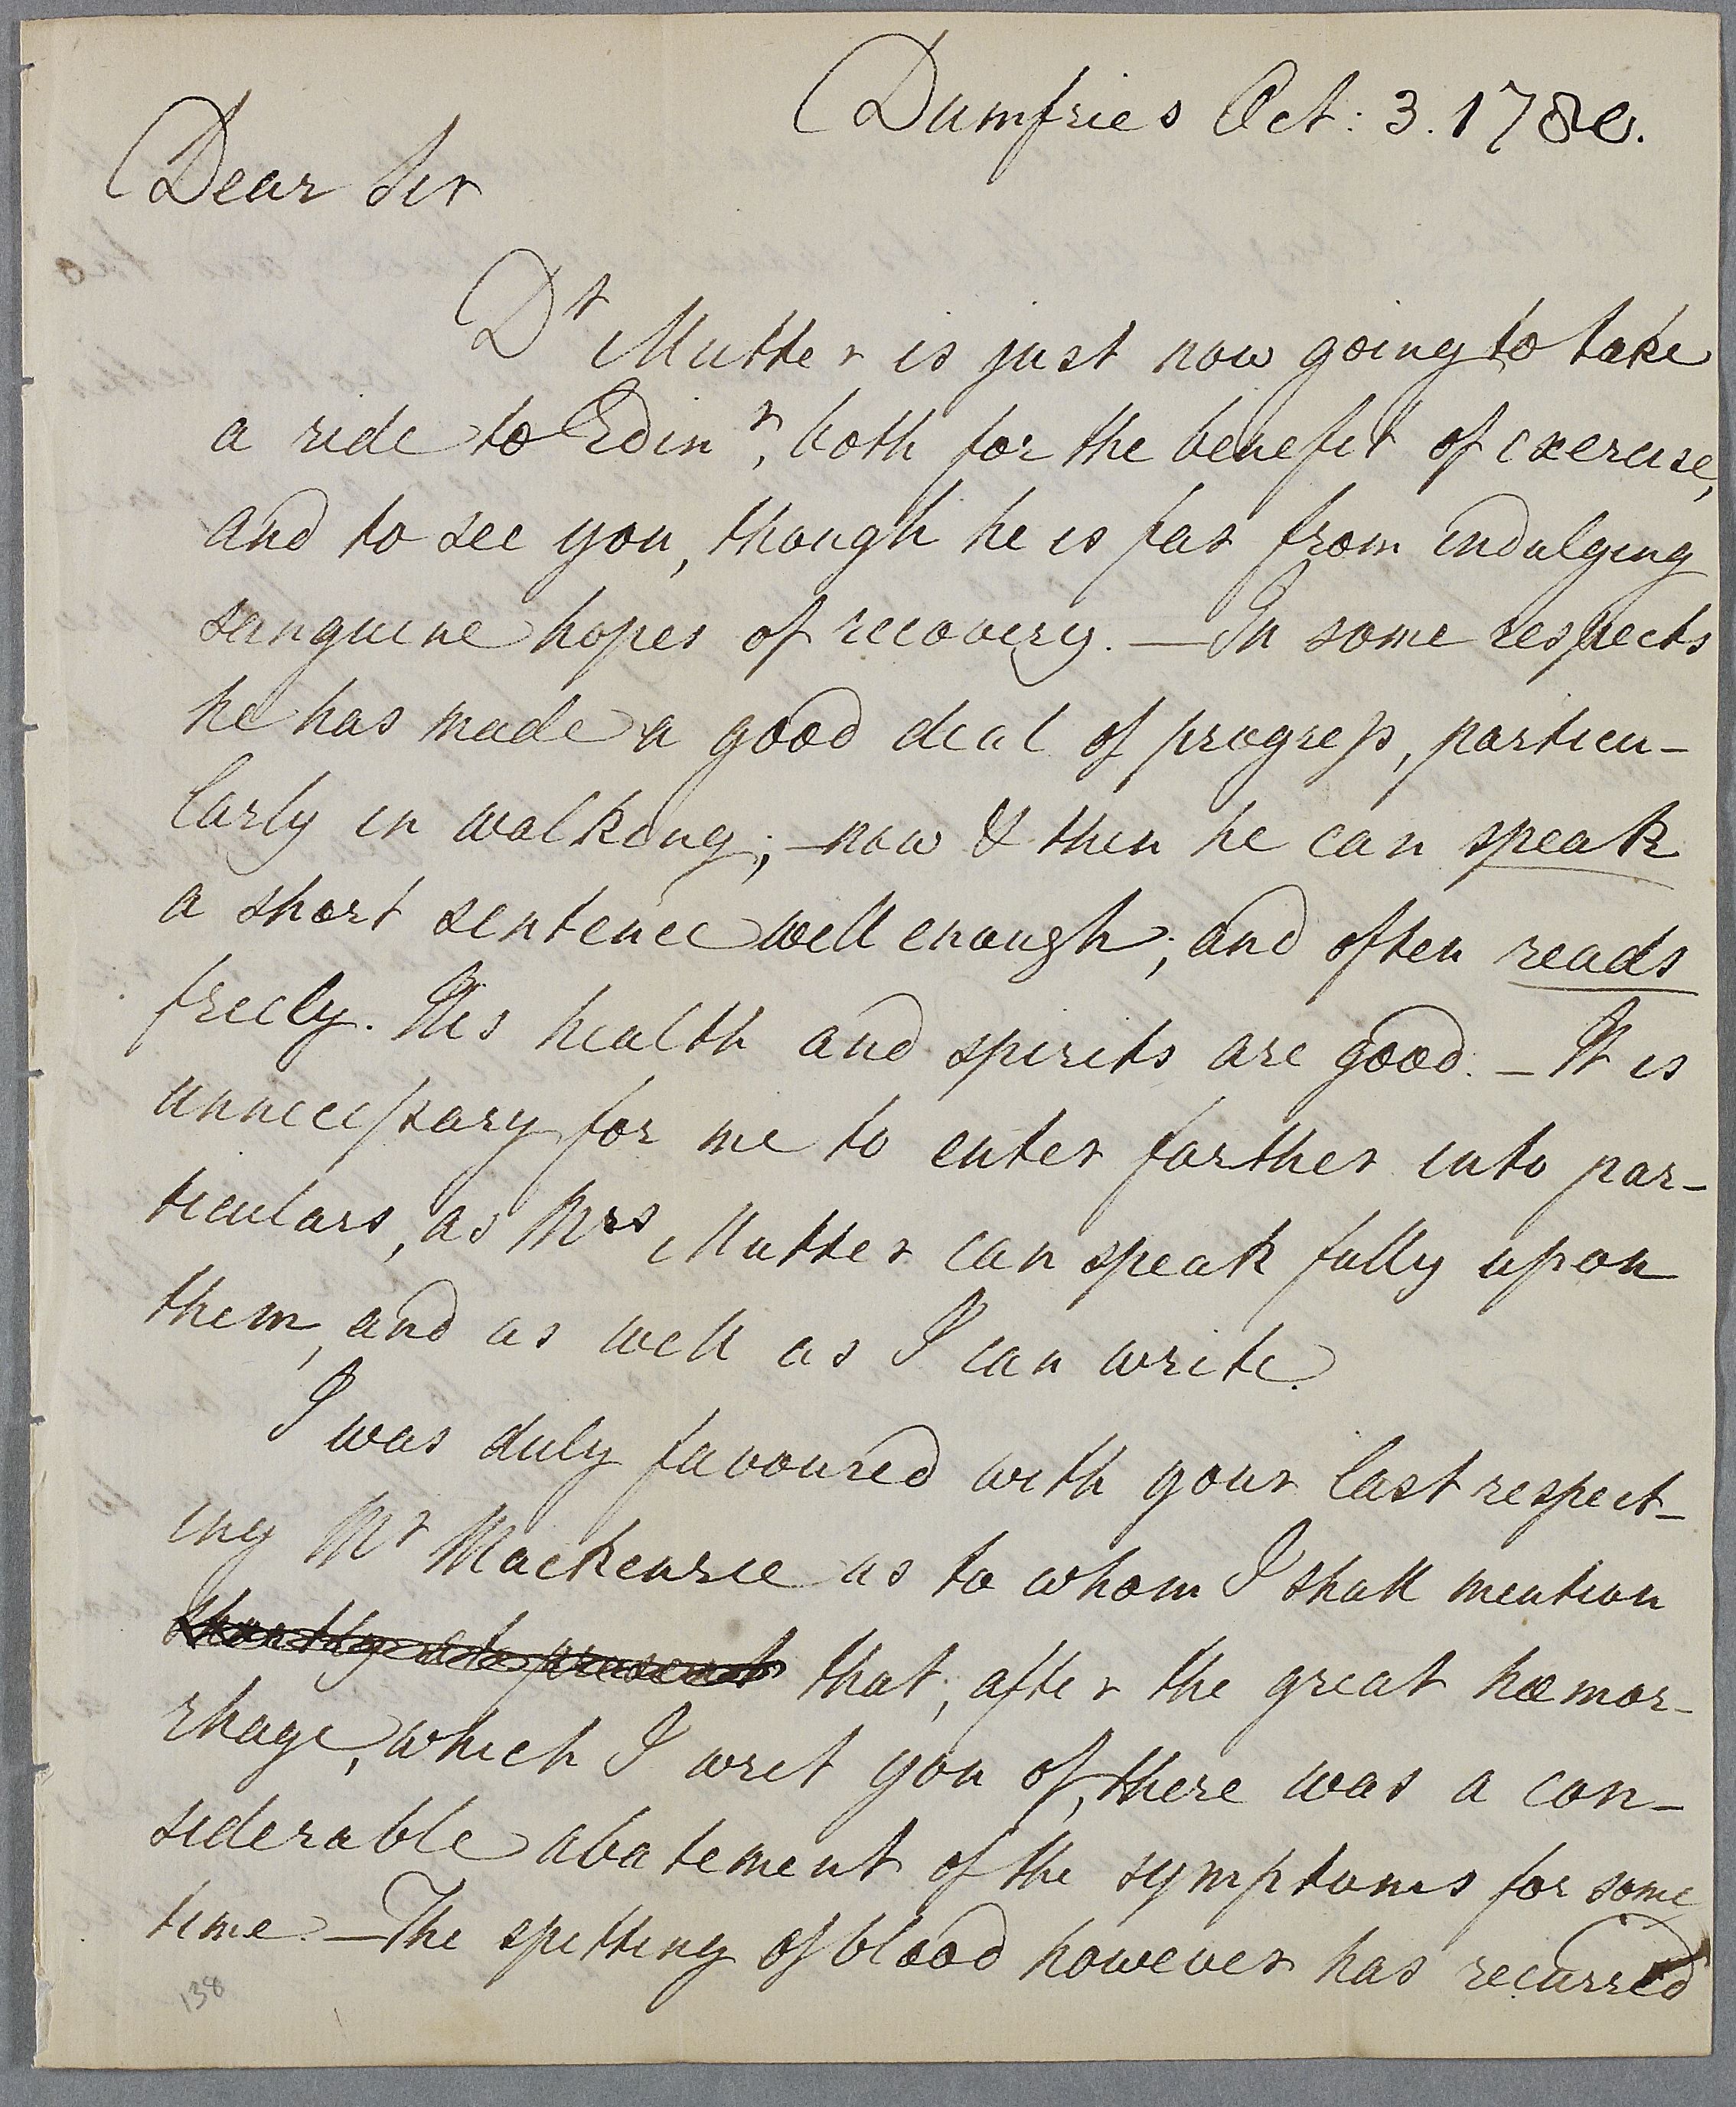 Dumfries Oct: 3. 1780.
Dear Sir
Dr Mutter is just now going to take
a ride to Edinr, both for the benefit of exercise,
and to see you, though he is far from indulging
sanguine hopes of recovery. — In some respects
he has made a good deal of progress, particu-
larly in walking; — now & then he can speak
a short sentence well enough; and often reads
freely. His health and spirits are good. — It is
unnecessary for me to enter farther into par-
ticulars, as Mrs Mutter can speak fully upon
them, and as well as I can write.
I was duly favoured with your last respect-
ing Mr Mackenzie as to whom I shall mention
shortly at present that, after the great hæmor-
rhage, which I writ you of, there was a con-
siderable abatement of the symptoms for some
time. — The spitting of blood however has recurred
138